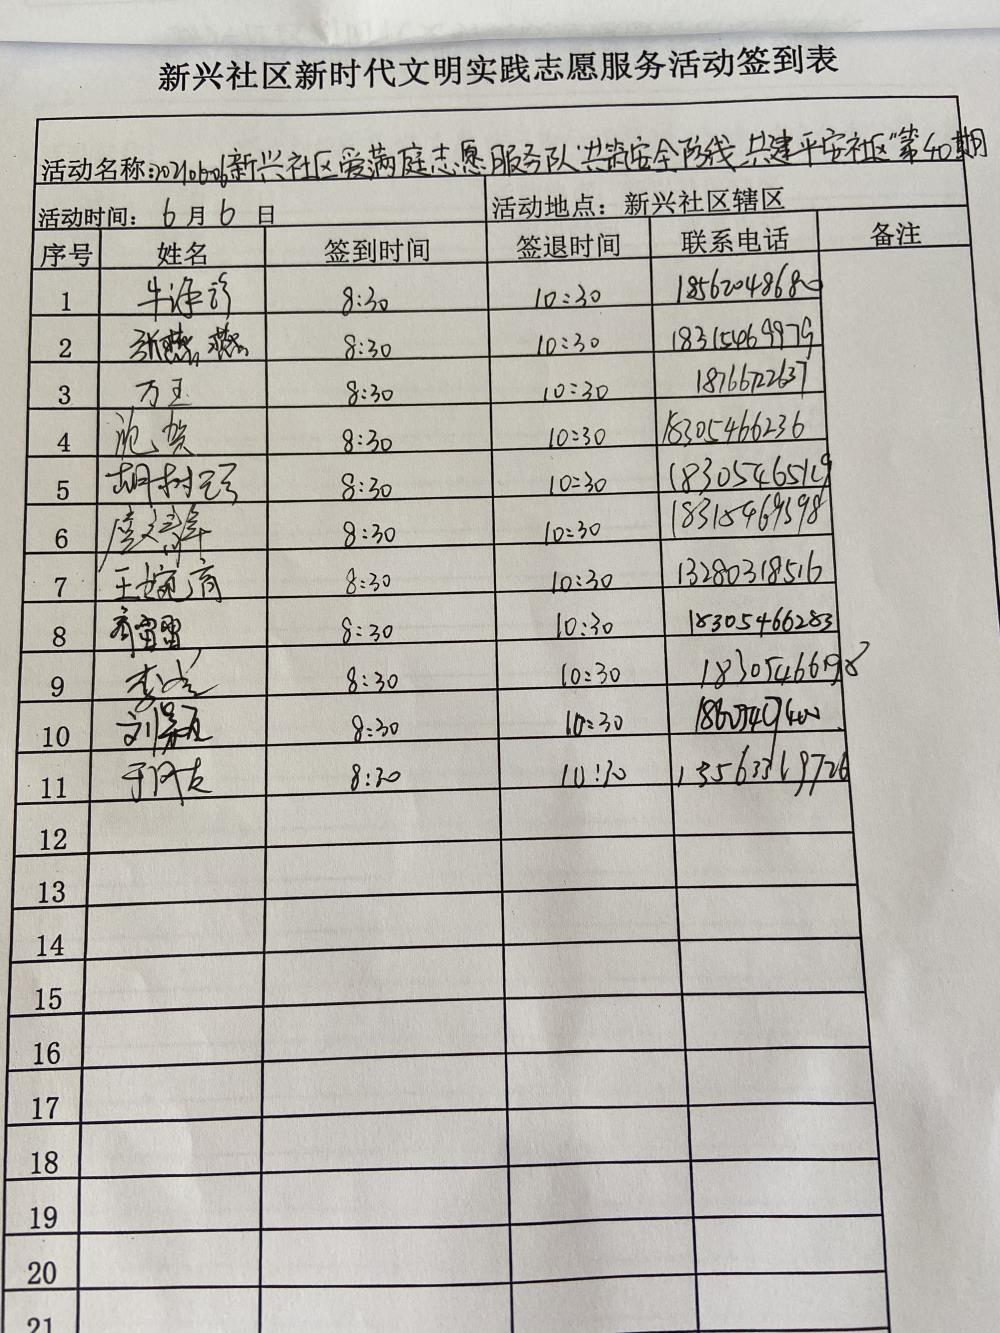 新兴社区新时代文明实践志愿服务活动签到表
活动名称:20210606新兴社区爱满庭志愿服务队"共筑安全防线 共建平安社区"第40期
活动时间: 6月6日 活动地点: 新兴社区辖区
序号 姓名 签到时间 签退时间 联系电话 备注
1 8:30 10:30 18562048680
2 张燕燕 8:30 10:30 18315469979
3 万玉 8:30 10:30 18766722637
4 8:30 10:30 18305466236
5 8:30 10:30 18305465119
6 8:30 10:30
7 8:30 10:30 13280318516
8 8:30 10:30 18305466283
9 8:30 10:30 18305466198
10 8:30 10:30
11 8:30 10:30 13563319726
12
13
14
15
16
17
18
19
20
21